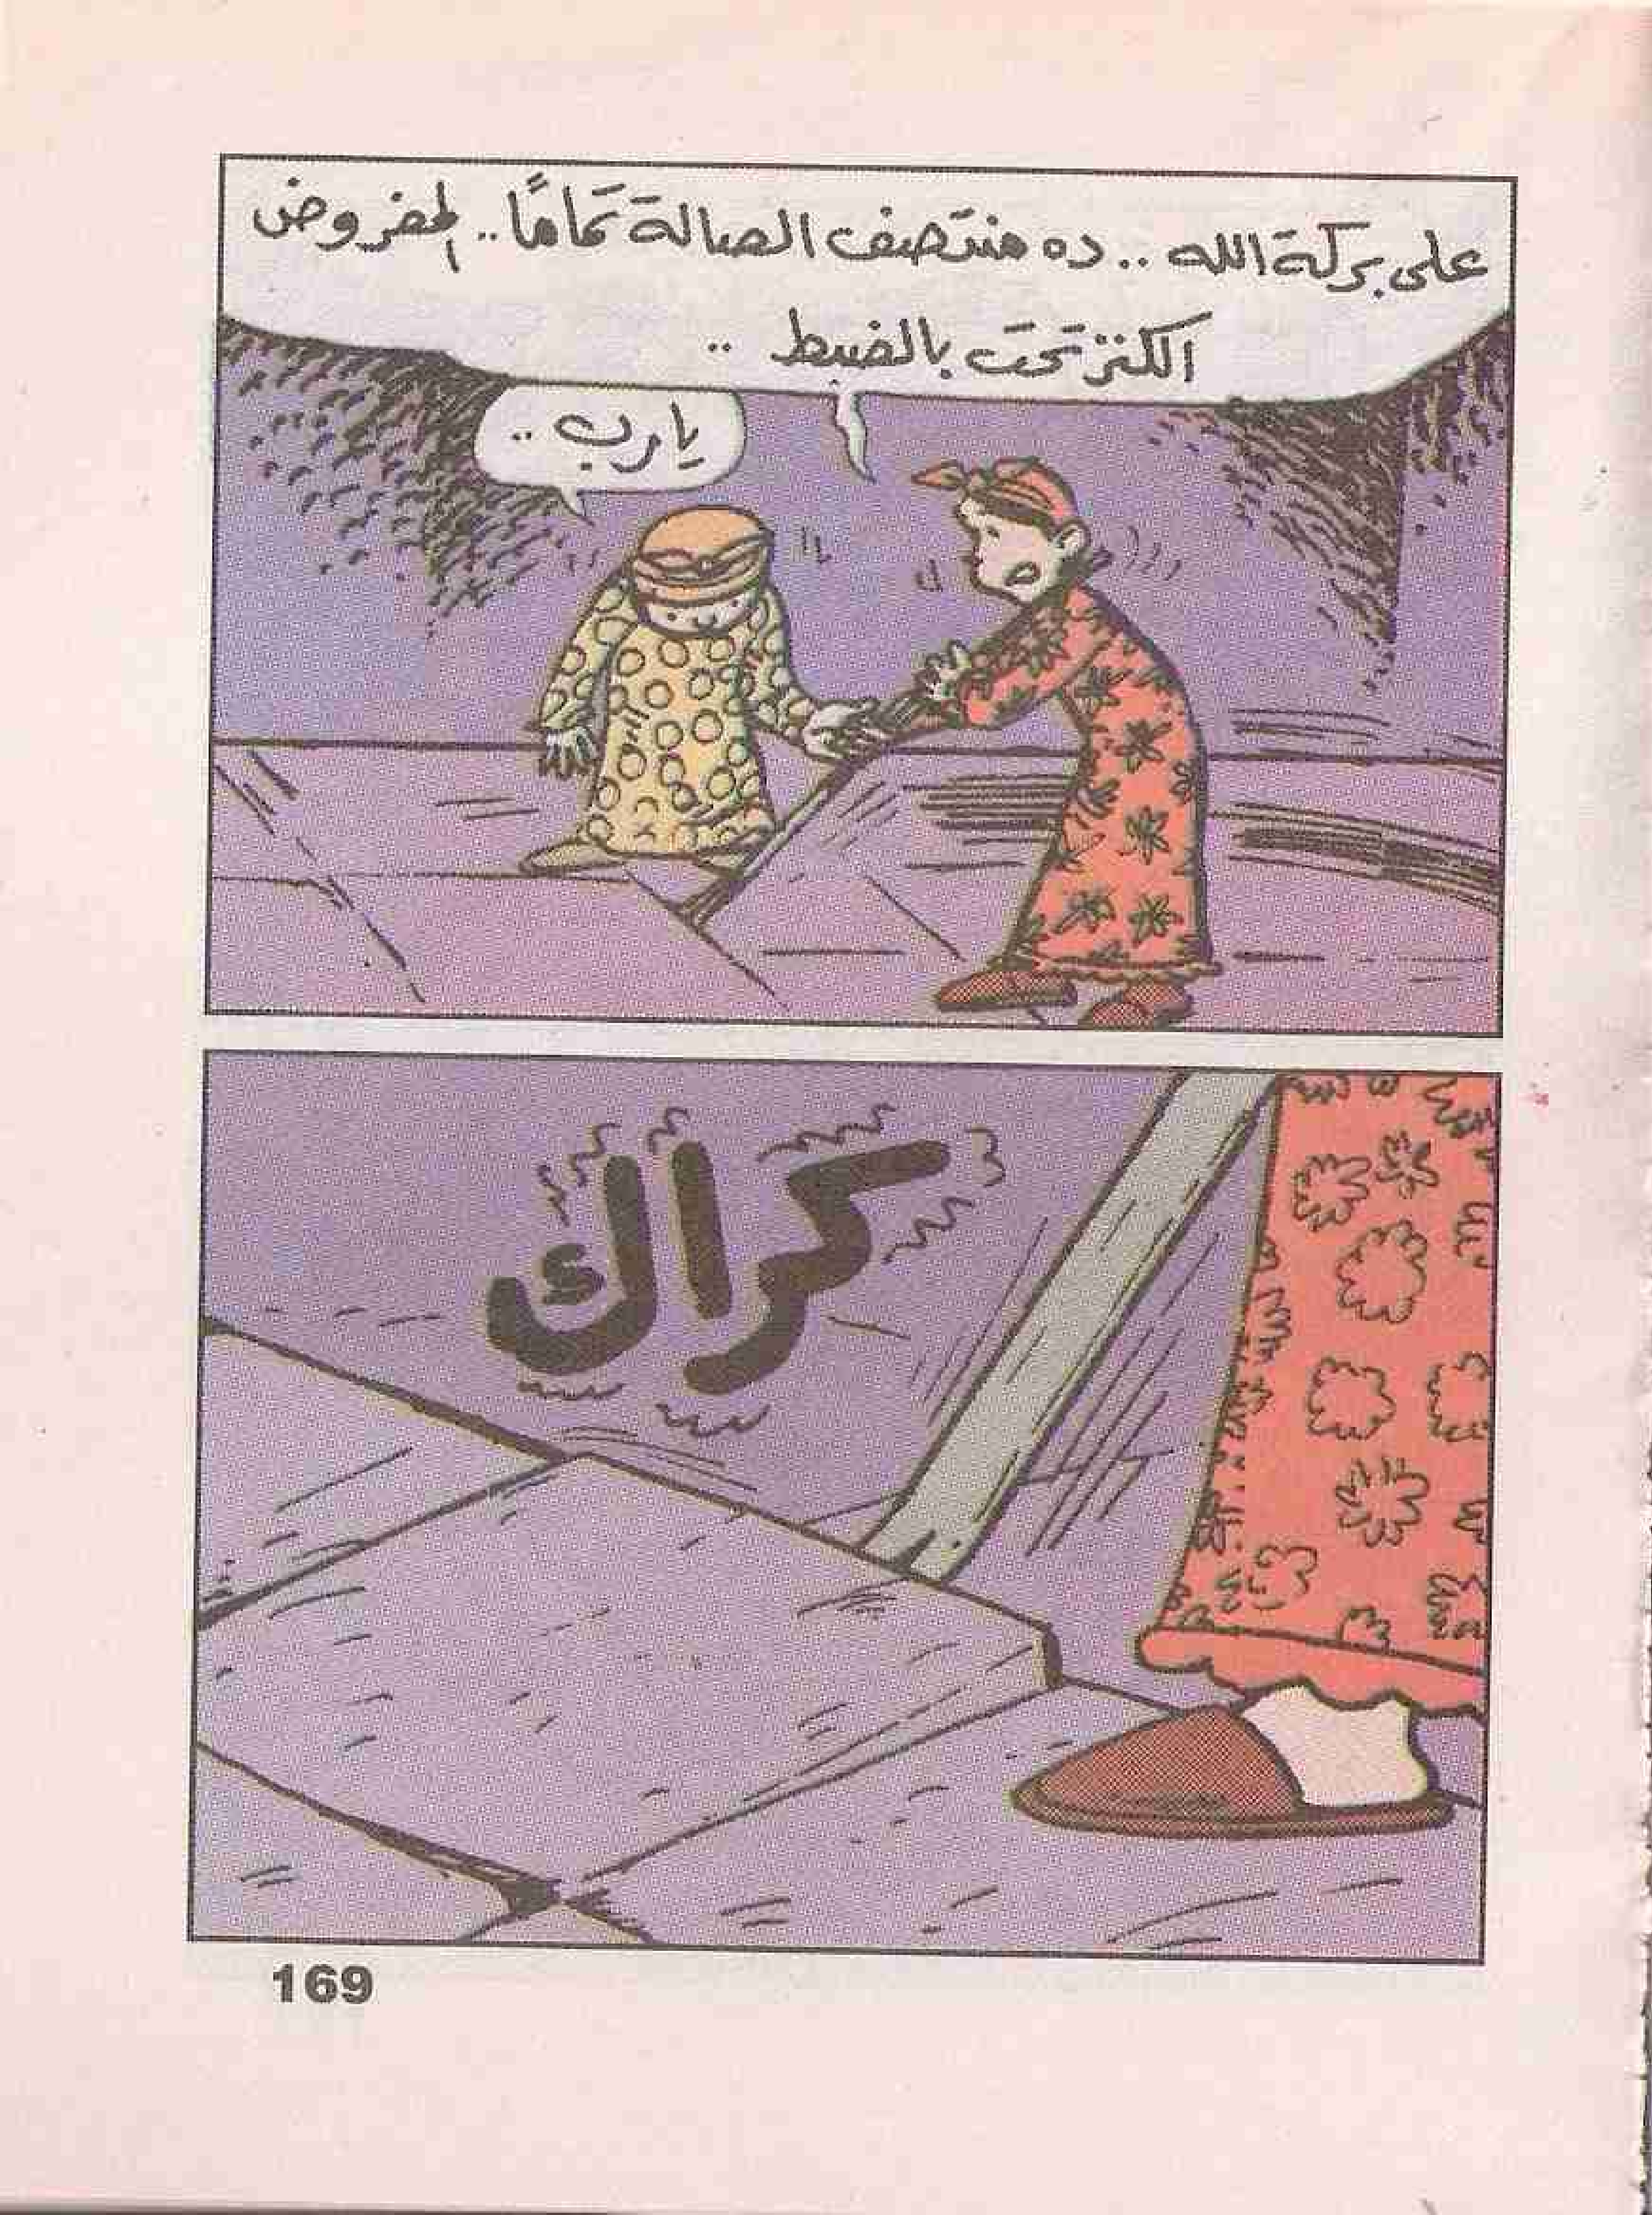 على بركة الله .. ده منتصف الصالة تمامًا .. المفروض
الكنز تحت بالضبط ..
يارب ..
كراك
169